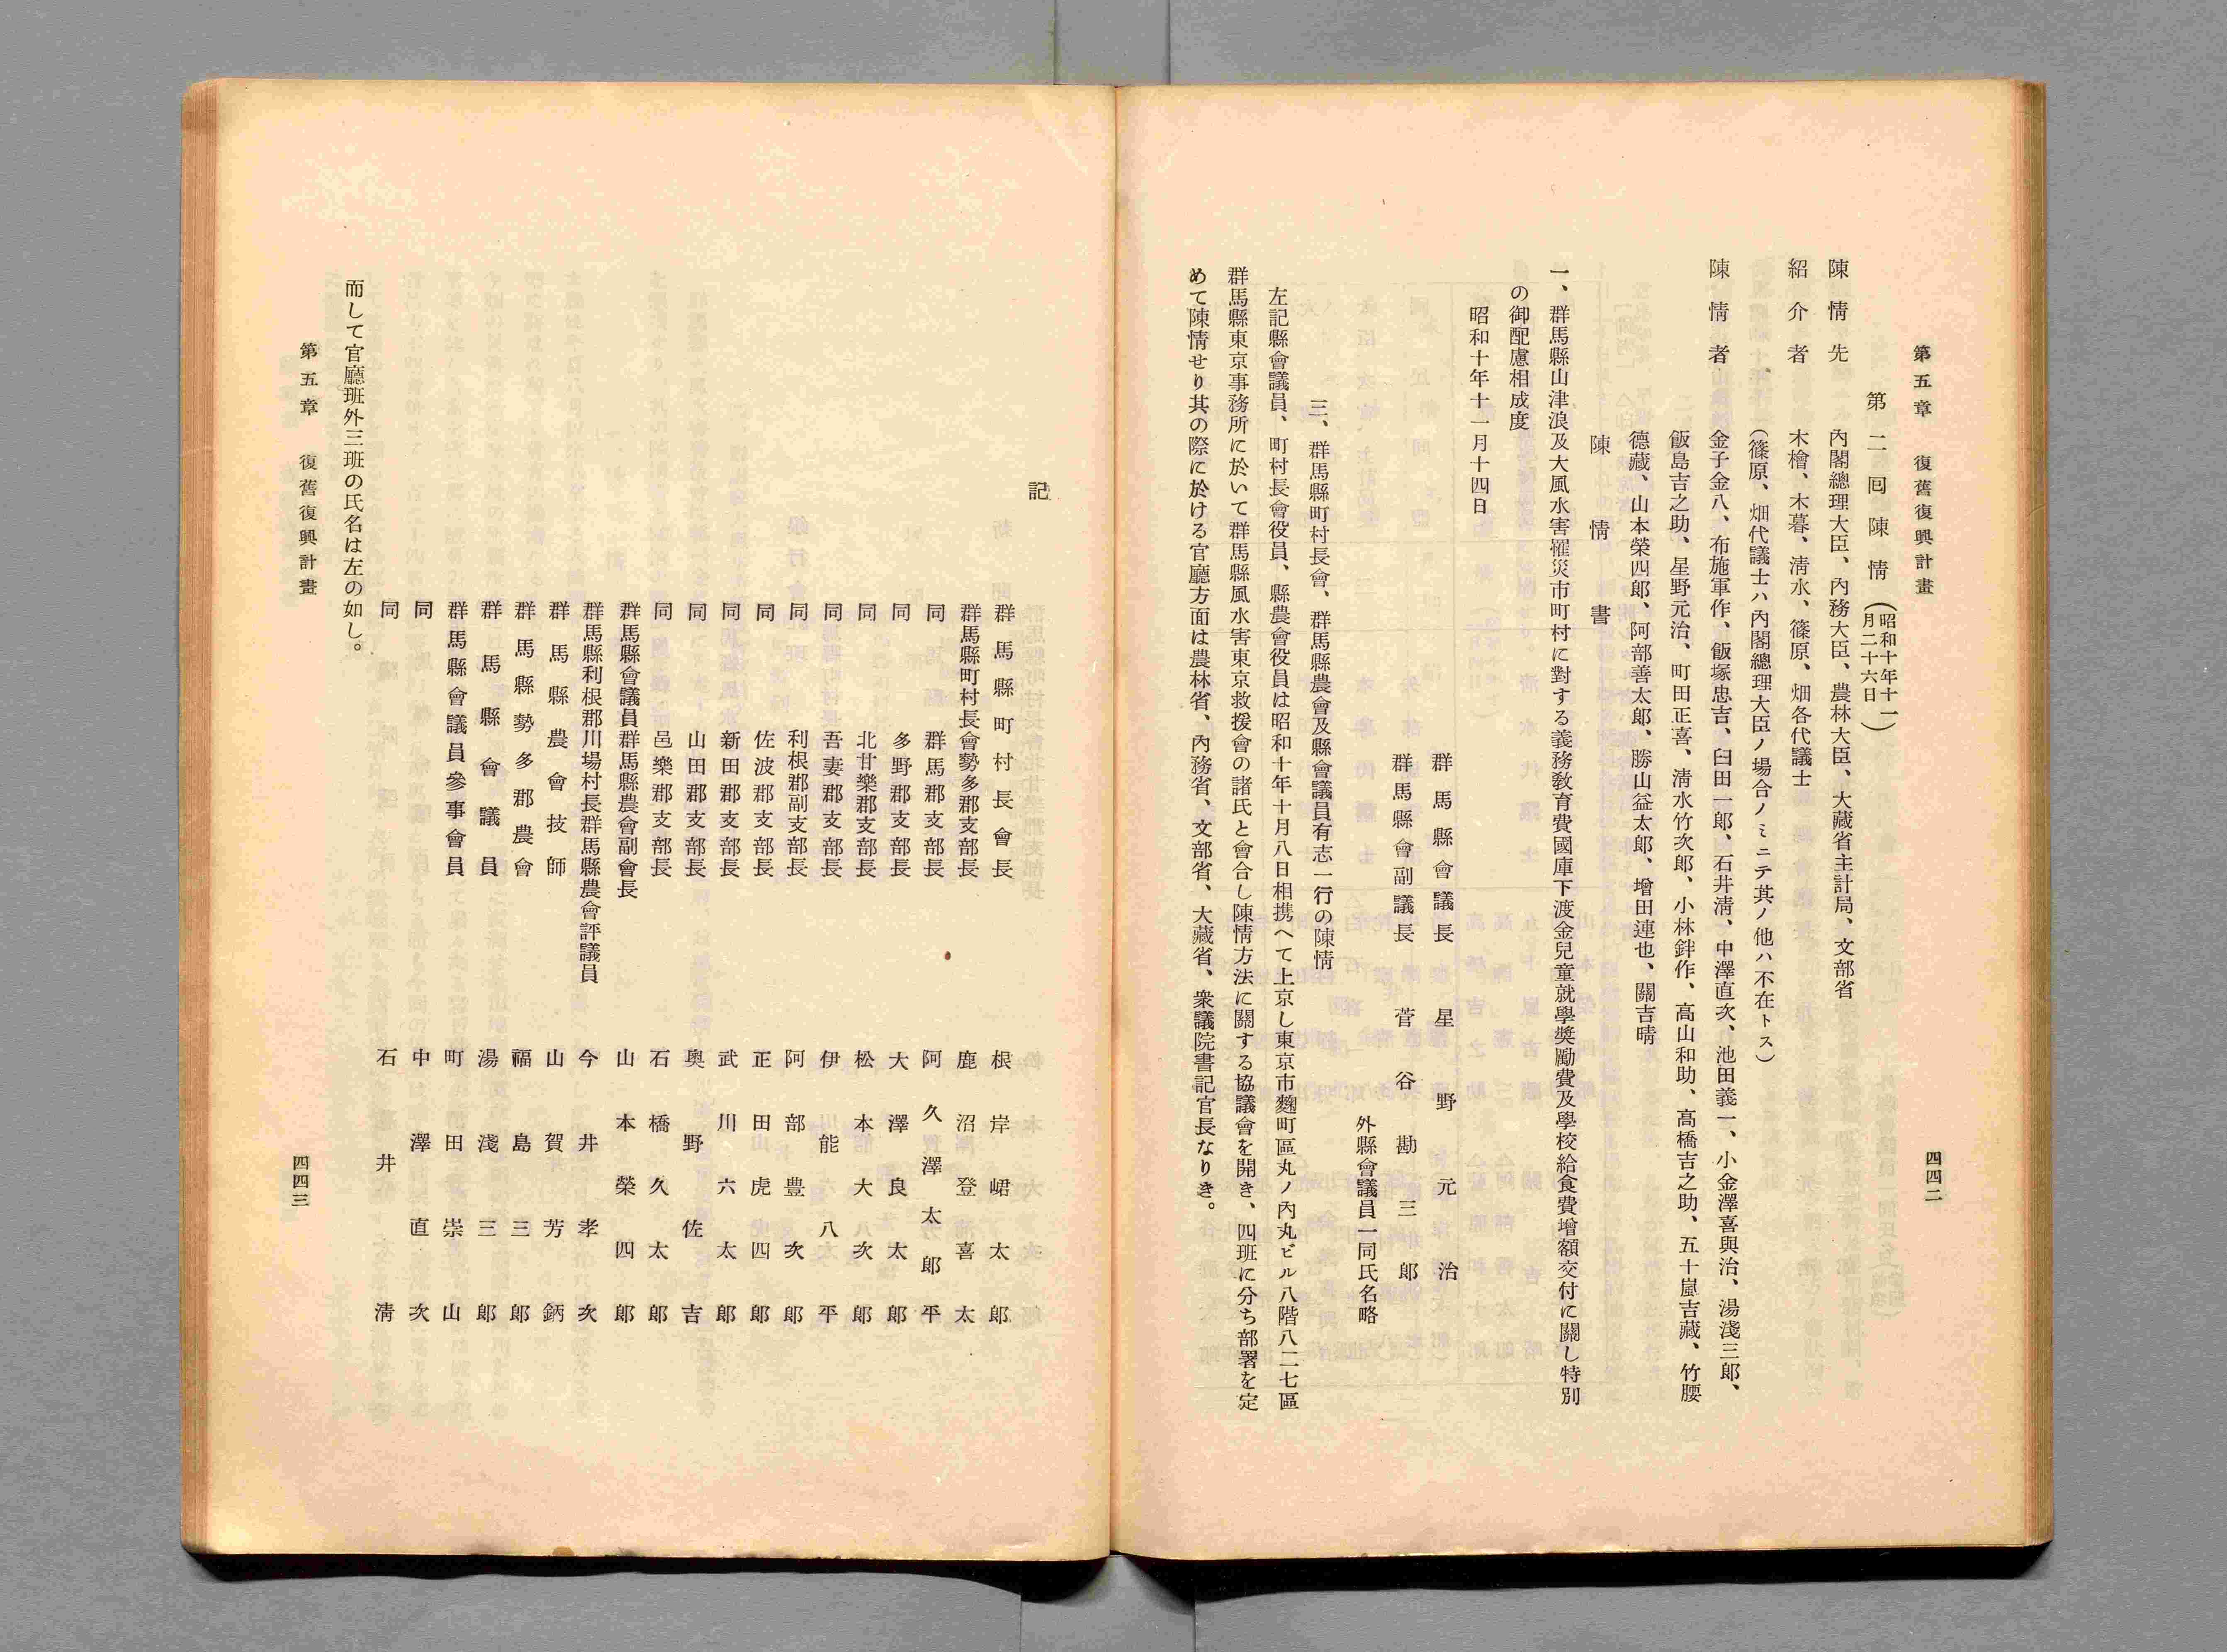 第五章　復舊復興計畫　四四二
第二囘陳情（昭和十年十一月二十六日）
陳情先　內閣總理大臣、內務大臣、農林大臣、大藏省主計局、文部省
紹介者　木檜、木暮、淸水、篠原、畑各代議士
（篠原、畑代議士ハ內閣總理大臣ノ場合ノミニテ其ノ他ハ不在トス）
陳情者　金子金八、布施軍作、飯塚忠吉、臼田一郞、石井淸、中澤直次、池田義一、小金澤喜與治、湯淺三郞、
飯島吉之助、星野元治、町田正喜、淸水竹次郞、小林鉡作、高山和助、高橋吉之助、五十嵐吉藏、竹腰
德藏、山本榮四郞、阿部善太郞、勝山益太郞、增田連也、關吉晴
陳情書
一、群馬縣山津浪及大風水害罹災市町村に對する義務教育費國庫下渡金兒童就學奬勵費及學校給食費增額交付に關し特別
の御配慮相成度
昭和十年十一月十四日
群馬縣會議長　星野元治
群馬縣會副議長　菅谷勘三郞
外縣會議員一同氏名略
三、群馬縣町村長會、群馬縣農會及縣會議員有志一行の陳情
左記縣會議員、町村長會役員、縣農會役員は昭和十年十月八日相携へて上京し東京市麴町區丸ノ內丸ビル八階八二七區
群馬縣東京事務所に於いて群馬縣風水害東京救援會の諸氏と會合し陳情方法に關する協議會を開き、四班に分ち部署を定
めて陳情せり其の際に於ける官廳方面は農林省、內務省、文部省、大藏省、衆議院書記官長なりき。
記
群馬縣町村長會長　根岸峮太郞
群馬縣町村長會勢多郡支部長　鹿沼登喜太
同　群馬郡支部長　阿久澤太郞平
同　多野郡支部長　大澤良太郞
同　北甘樂郡支部長　松本大次郞
同　吾妻郡支部長　伊能八平
同　利根郡副支部長　阿部豊次郞
同　佐波郡支部長　正田虎四郞
同　新田郡支部長　武川六太郞
同　山田郡支部長　奧野佐吉
同　邑樂郡支部長　石橋久太郞
群馬縣會議員群馬縣農會副會長　山本榮四郞
群馬縣利根郡川場村長群馬縣農會評議員　今井孝次
群馬縣農會技師　山賀芳鈵
群馬縣勢多郡農會　福島三郞
群馬縣會議員　湯淺三郞
群馬縣會議員參事會員　町田崇山
同　中澤直次
同　石井淸
而して官廳班外三班の氏名は左の如し。
第五章　復舊復興計畫　四四三